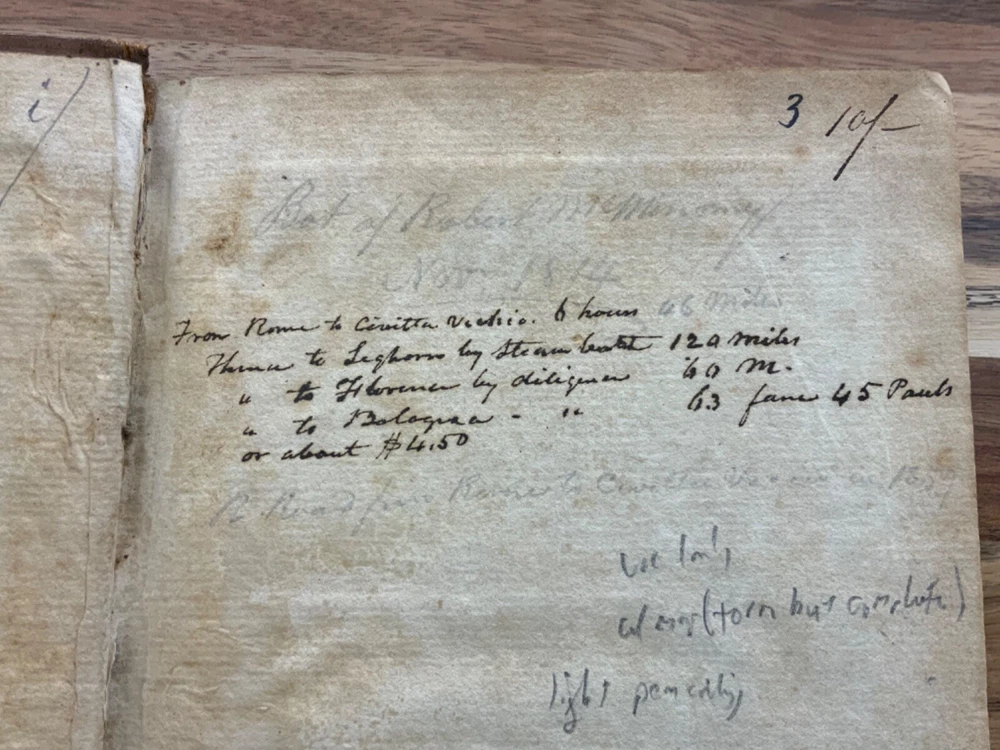 i/
3 10/-
of Robert
Nov.
46 miles
From Rome to Civitta Vechio. 6 hours
Thence to Leghorn by Steam boat 120 miles
" to Florence by diligence 60 M.
" to Bologna - " 63 fare 45 Pauls
or about $4.50
R Road from Rome to Civitta Vecchio in
(torn but complete)
light pencilling